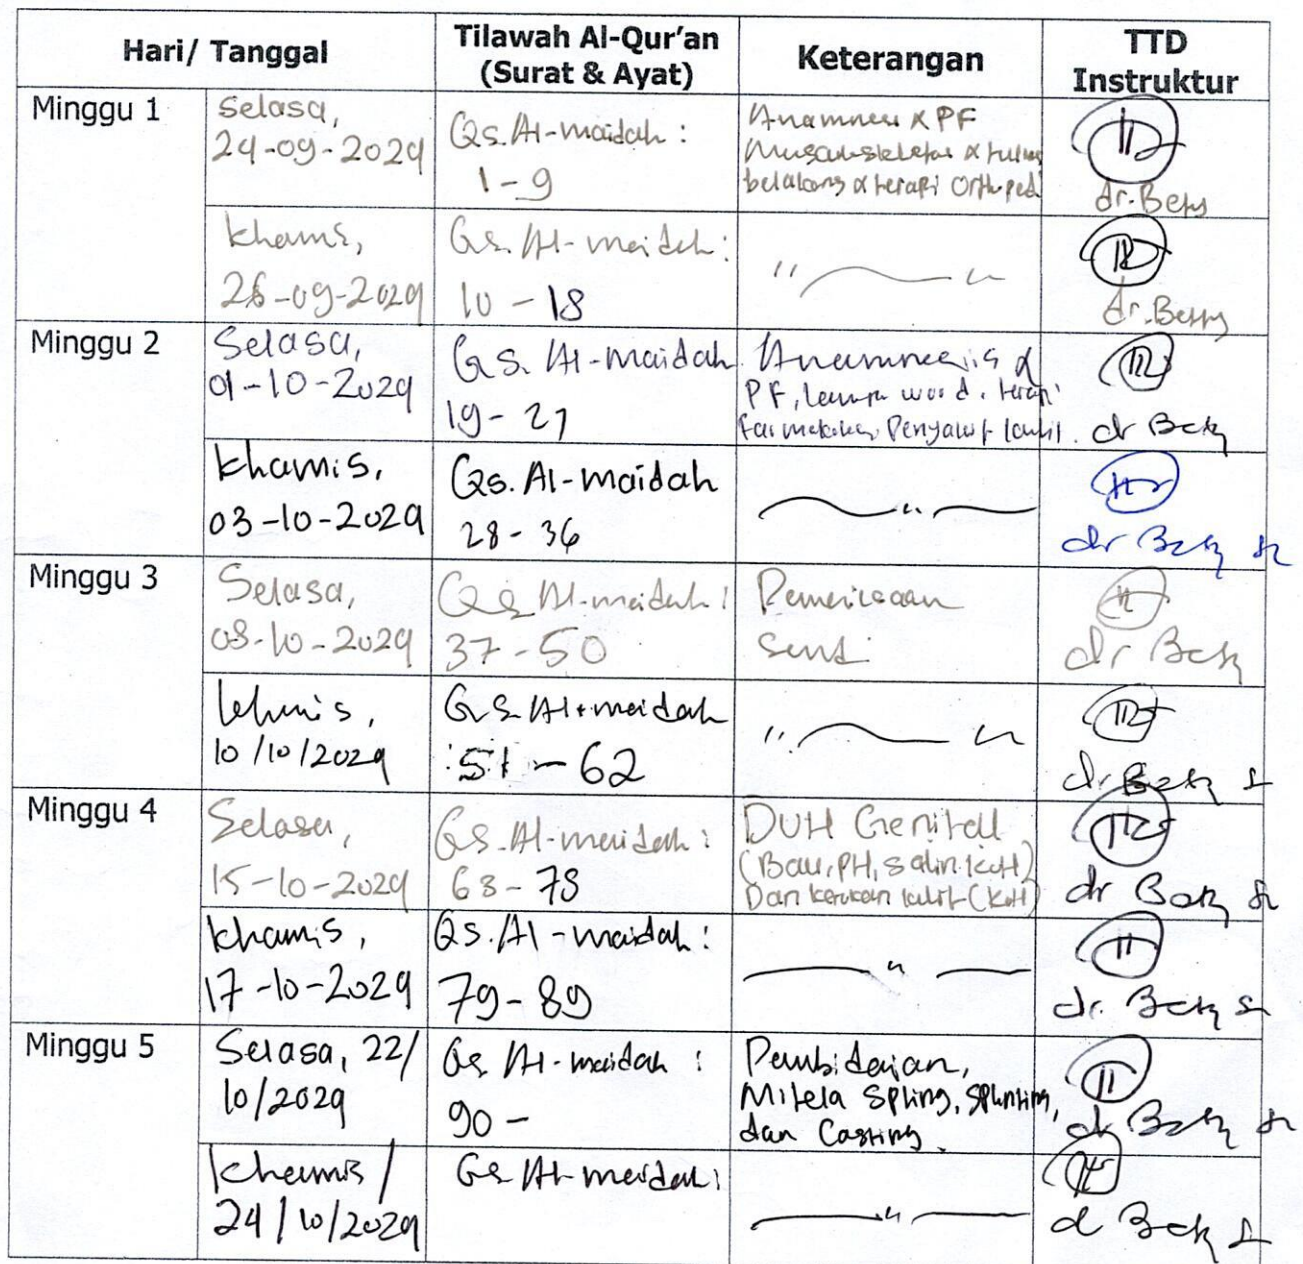 Hari/ Tanggal
Tilawah Al-Qur'an
(Surat & Ayat)
Keterangan
TTD
Instruktur
Minggu 1
Selasa,
24-09-2024
Qs. Al-maidah :
1-9
& PF
& tulang
belakang & terapi Orthopedi
dr. Betty
khamis,
26-09-2024
Qs. Al-maidah:
10 - 18
"
"
dr. Betty
Minggu 2
Selasa,
01-10-2024
Qs. Al-maidah
19- 27
Anamnesis &
PF, wood, terapi
Penyakit kulit.
dr
khamis,
03-10-2024
Qs. Al-maidah
28 - 36
"
dr
Minggu 3
Selasa,
08-10-2024
Qs Al-maidah :
37-50
Pemeriksaan
Sendi
dr
khamis,
10/10/2024
Qs. Al-maidah
:51 - 62
"
"
dr
Minggu 4
Selasa,
15-10-2024
Qs. Al-maidah :
68- 78
DUH Genital
(Bau, PH, salin, KOH)
Dan kerokan kulit (KOH)
dr
khamis,
17-10-2024
Qs. Al-maidah :
79-89
"
dr.
Minggu 5
Selasa, 22/
10/2024
Qs. Al-maidah :
90 -
Pembidaian,
Mitela Spling, splinting,
dan Casting.
dr
khamis /
24/10/2024
Qs Al-maidah:
"
d